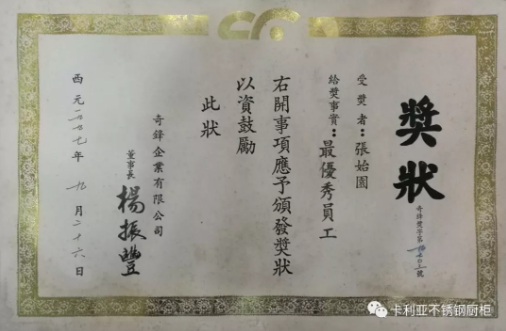 獎狀
奇鋒獎字第 號
受獎者：張始園
給獎事實：最優秀員工
右開事項應予頒發獎狀
以資鼓勵
此狀
奇鋒企業有限公司
董事長 楊振豐
西元 年 九 月 二十六 日
卡利亚不锈钢厨柜